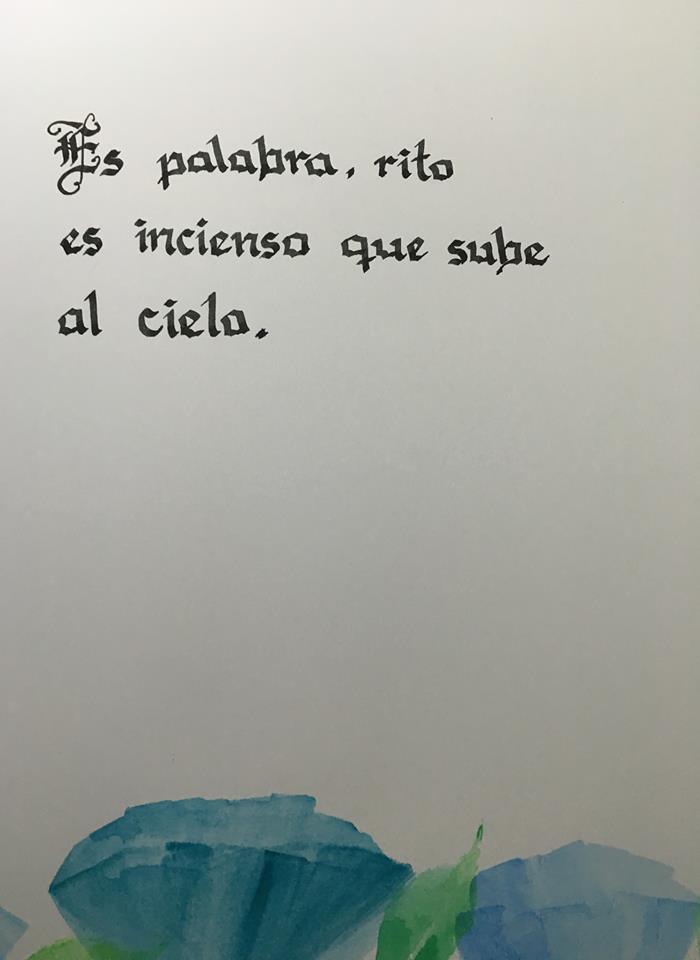 Es palabra, rito
es incienso que sube
al cielo.